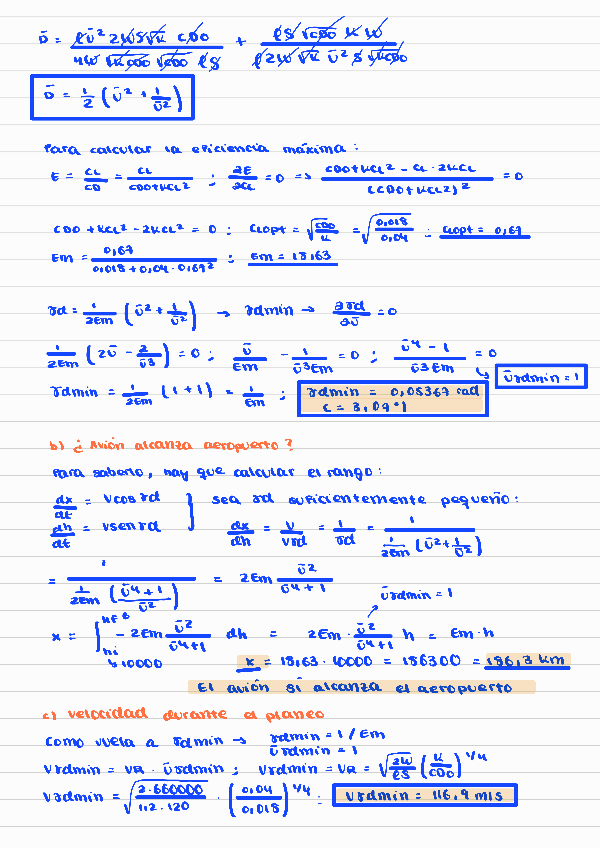 D̄ = (ρ Ū² 2W S √K CD0) / (4W √(K CD0) √CD0 ρ S) + (ρ S √CD0 K W) / (ρ 2W √K Ū² S √CD0)
D̄ = 1/2 (Ū² + 1/Ū²)
Para calcular la eficiencia máxima:
E = CL/CD = CL/(CD0+KCL²) ; ∂E/∂CL = 0 => (CD0+KCL² - CL·2KCL)/(CD0+KCL²)² = 0
CD0 + KCL² - 2KCL² = 0 ; CLopt = √(CD0/K) = √(0,018/0,04) ; CLopt = 0,67
Em = 0,67/(0,018+0,04·0,67²) ; Em = 18,63
γd = 1/2Em (Ū² + 1/Ū²) → γdmin → ∂γd/∂Ū = 0
1/2Em (2Ū - 2/Ū³) = 0 ; Ū/Em - 1/Ū³Em = 0 ; (Ū⁴ - 1)/Ū³Em = 0
↳ Ūγdmin = 1
γdmin = 1/2Em (1+1) = 1/Em ; γdmin = 0,05367 rad
( = 3,07°)
b) ¿Avión alcanza aeropuerto?
Para saberlo, hay que calcular el rango:
dx/dt = V cos γd } sea γd suficientemente pequeño:
dh/dt = V sen γd } dx/dh = V/Vγd = 1/γd = 1/(1/2Em (Ū² + 1/Ū²))
= 1/(1/2Em ((Ū⁴+1)/Ū²)) = 2Em Ū²/(Ū⁴+1)
Ūγdmin = 1
x = ∫ - 2Em Ū²/(Ū⁴+1) dh = 2Em · Ū²/(Ū⁴+1) h = Em·h
hi ↳ 10000
x = 18,63 · 10000 = 186300 = 186,3 km
El avión sí alcanza el aeropuerto
c) Velocidad durante el planeo
Como vuela a γdmin → γdmin = 1/Em
Ūγdmin = 1
Vγdmin = VR · Ūγdmin ; Vγdmin = VR = √(2W/ρS) (K/CD0)^1/4
Vγdmin = √(2·660000/(1,2·120)) · (0,04/0,018)^1/4 : Vγdmin = 116,9 m/s